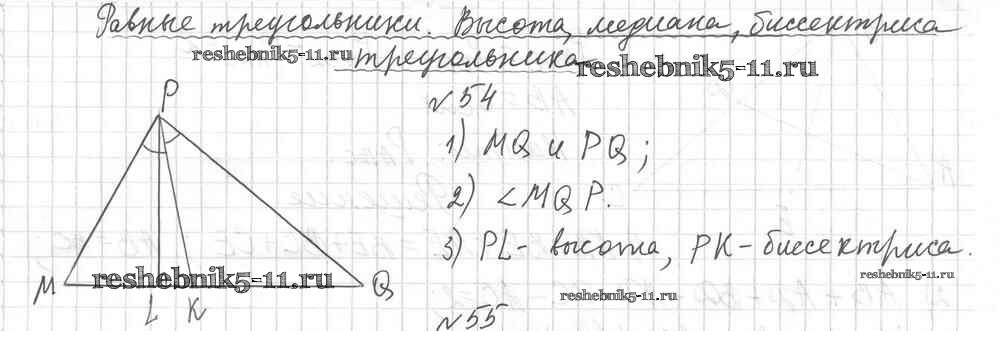 Равные треугольники. Высота, медиана, биссектриса
треугольника
reshebnik5-11.ru
reshebnik5-11.ru
P
№54
1) MQ и PQ;
2) ∠MQP.
3) PL - высота, PK - биссектриса.
reshebnik5-11.ru
M
reshebnik5-11.ru
Q
reshebnik5-11.ru
L K
№55